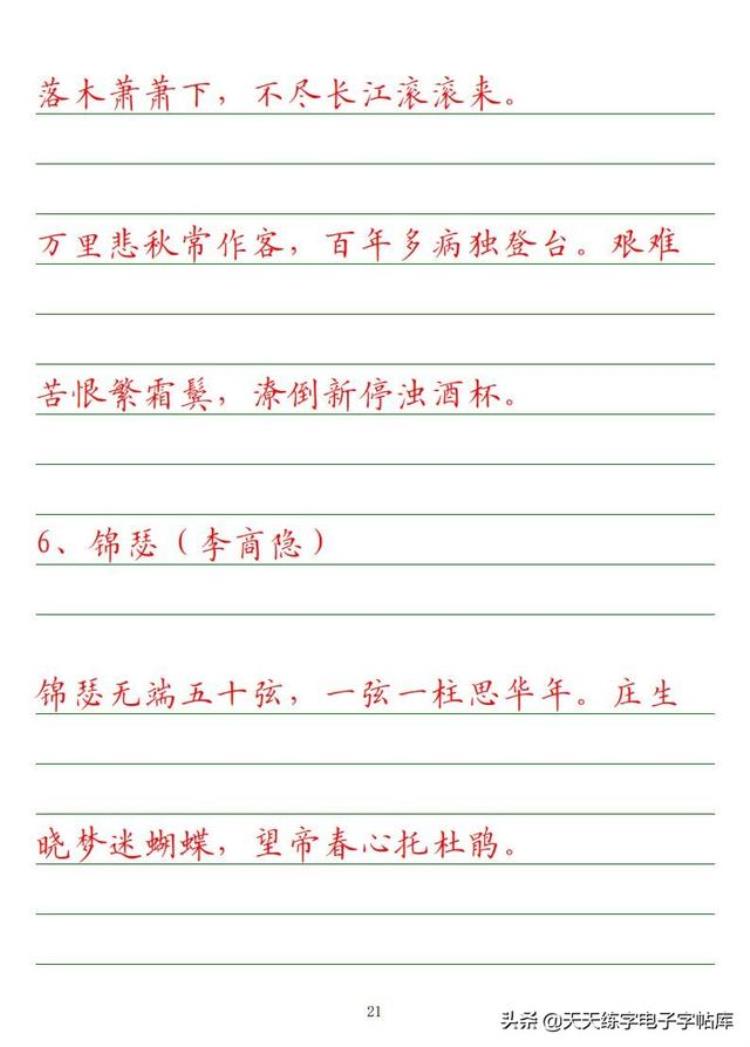 落木萧萧下，不尽长江滚滚来。
万里悲秋常作客，百年多病独登台。艰难
苦恨繁霜鬓，潦倒新停浊酒杯。
6、锦瑟（李商隐）
锦瑟无端五十弦，一弦一柱思华年。庄生
晓梦迷蝴蝶，望帝春心托杜鹃。
21
头条 @天天练字电子字帖库